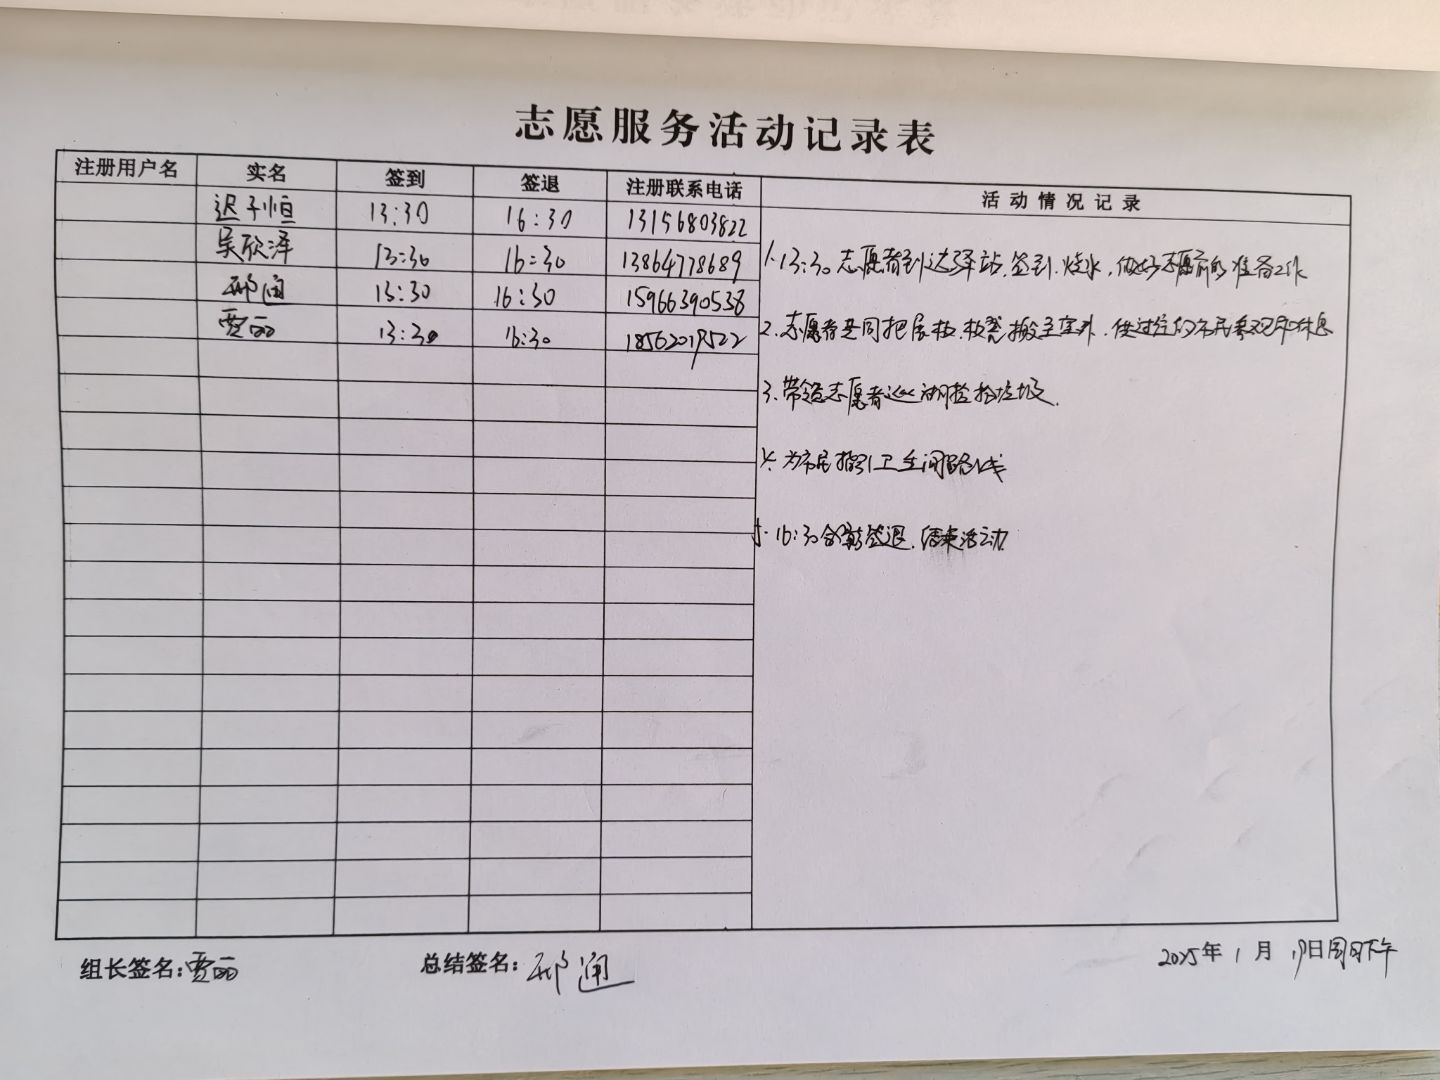 志愿服务活动记录表
注册用户名 实名 签到 签退 注册联系电话 活动情况记录
迟子恒 13:30 16:30 13156803822
吴欣泽 13:30 16:30 13864778689
邴闻 13:30 16:30 15966390538
贾丽 13:30 16:30 18562019522
1.13:30志愿者到达驿站,签到.烧水,做好志愿前的准备工作
2.志愿者共同把展板.板凳搬至室外.供过往的市民参观和休息
3.带领志愿者巡湖捡拾垃圾.
4.为市民指引卫生间路线
5.16:30合影签退.结束活动
组长签名:贾丽 总结签名:邴闻 2025年1月19日周日下午